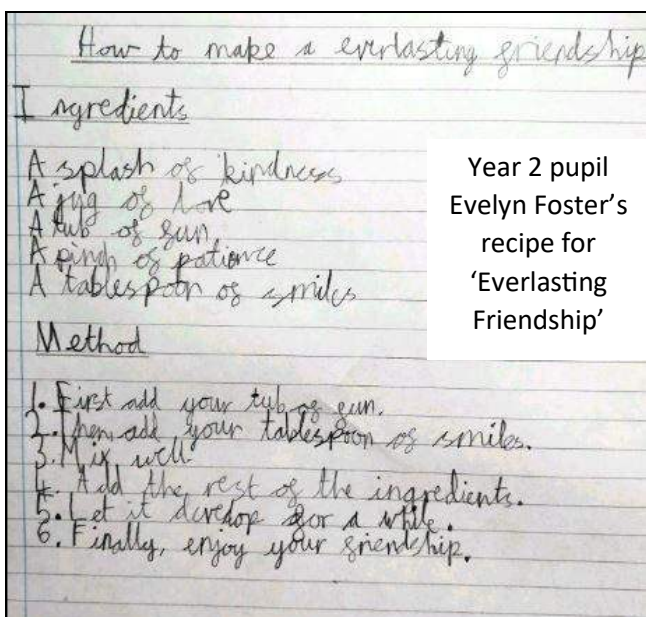 How to make a everlasting friendship
Ingredients
A splash of kindness
A jug of love
A tub of fun
A pinch of patience
A tablespoon of smiles
Year 2 pupil
Evelyn Foster's
recipe for
'Everlasting
Friendship'
Method
1. First add your tub of fun.
2. Then add your tablespoon of smiles.
3. Mix well
4. Add the rest of the ingredients.
5. Let it develop for a while.
6. Finally, enjoy your friendship.